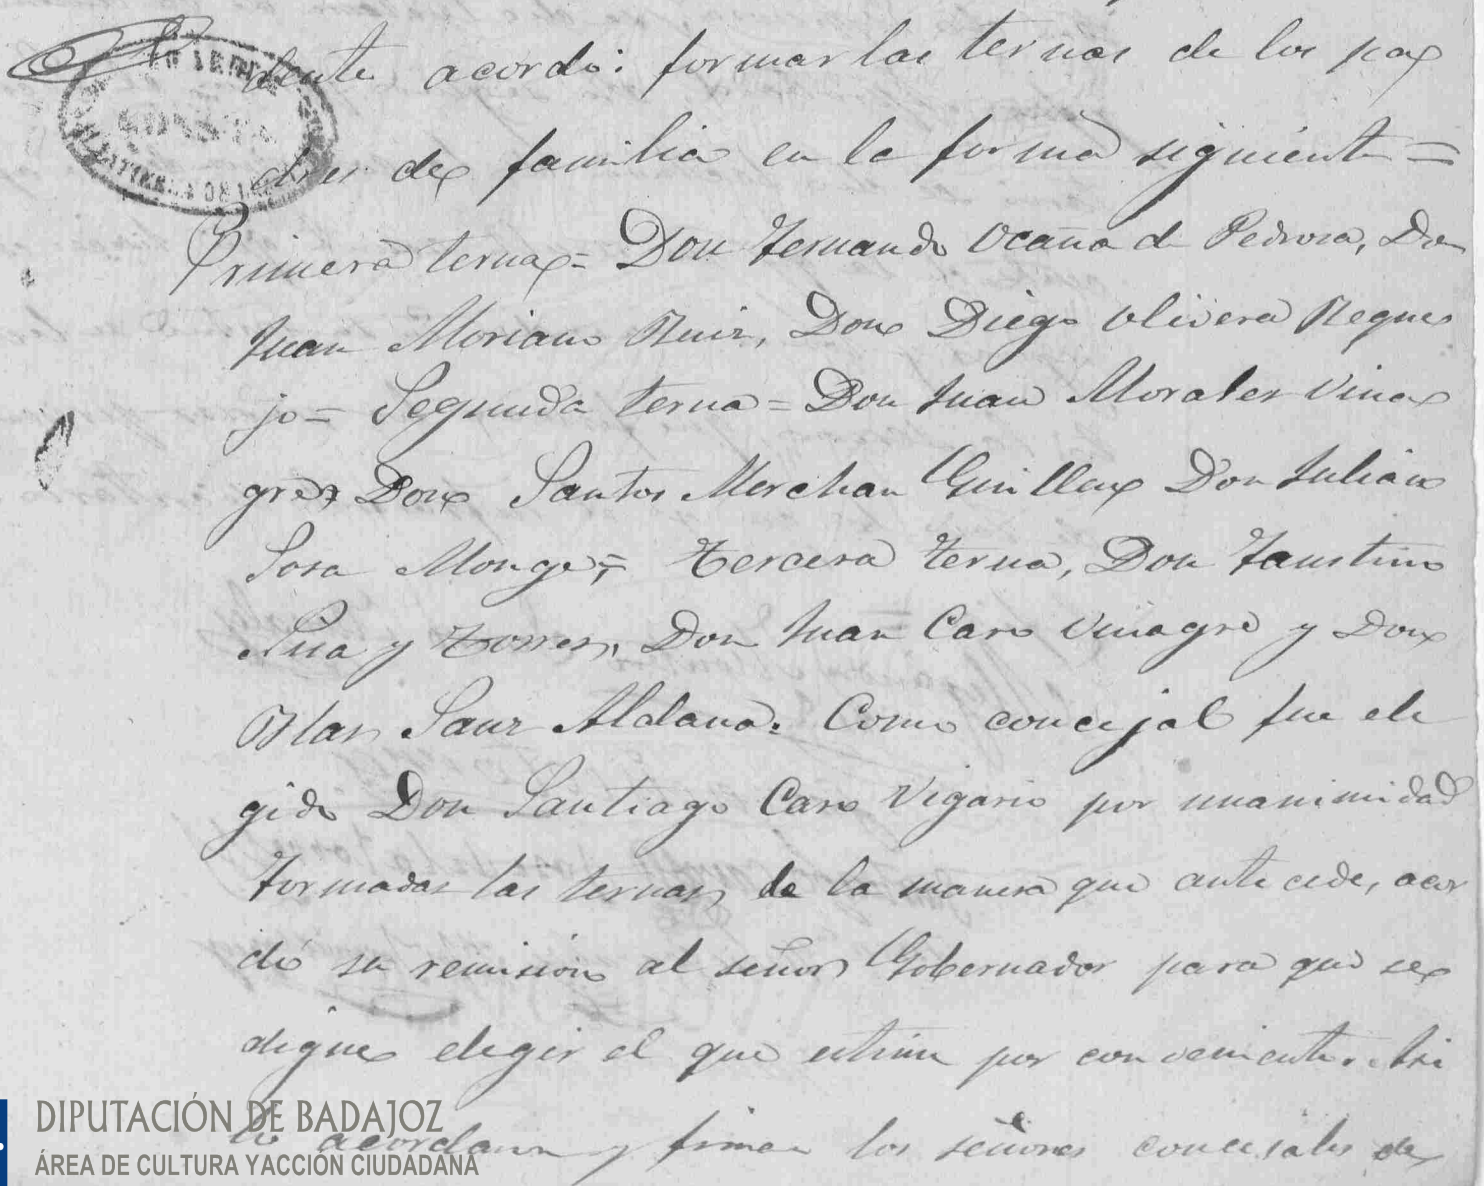 dente acordó: formar las ternas de los pa
dres de familia en la forma siguiente =
Primera terna = Don Fernando Ocaña de Pedrosa, Don
Juan Moriano Ruiz, Don Diego Olivera Reque
jo = Segunda terna = Don Juan Morales Vina
gre, Don Santos Merchan Guillen Don Julian
Sosa Monge, = Tercera terna, Don Faustino
y Torres, Don Juan Caro Vinagre y Don
Blas Sanz Aldana. Como concejal fue ele
gido Don Santiago Caro Vigario por unanimidad
Formadas las ternas de la manera que antecede, acor
dó su remisión al señor Gobernador para que se
digne elegir el que estime por conveniente. Asi
lo acordaron y firman los señores concejales de
DIPUTACIÓN DE BADAJOZ
ÁREA DE CULTURA Y ACCIÓN CIUDADANA